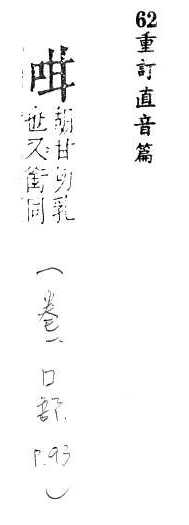 62重訂直音篇
㖤
胡甘切乳
也又銜同
(卷一 口部 P.93)